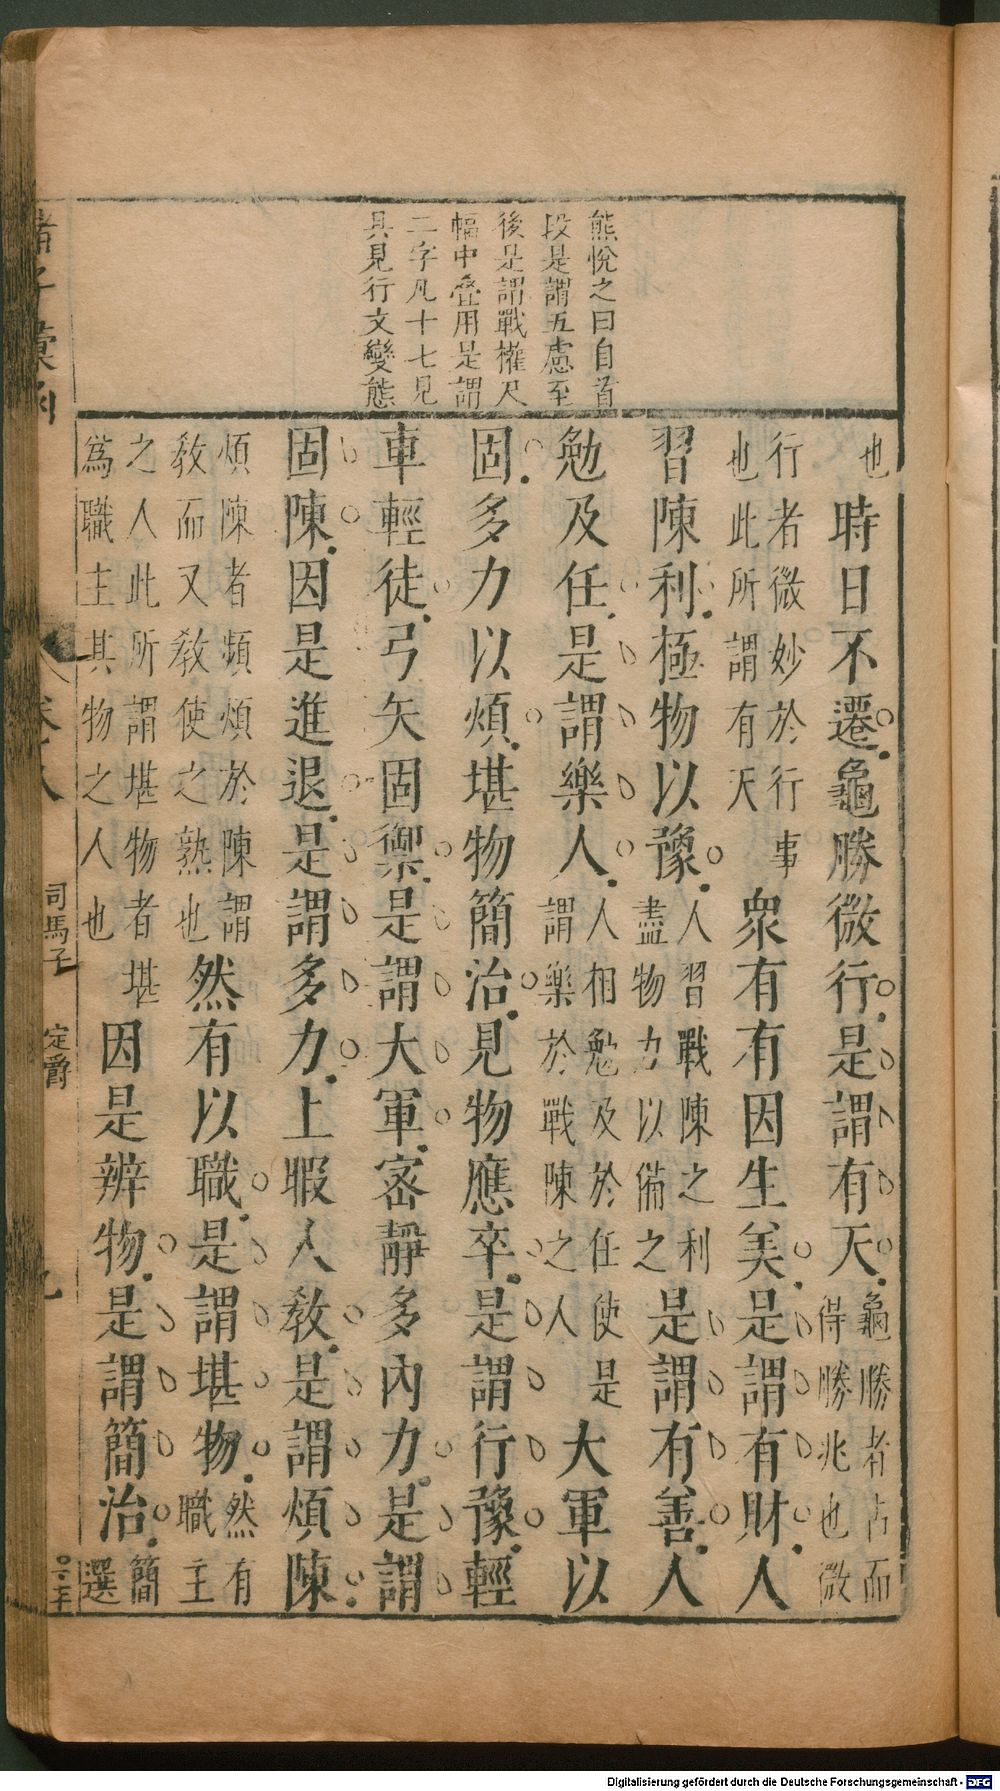 熊悅之曰自首
段是謂五慮至
後是謂戰權尺
幅中疊用是謂
二字凡十七見
具見行文變態
也時日不遷龜勝微行是謂有天龜勝者占而
得勝兆也微
行者微妙於行事
也此所謂有天衆有有因生美是謂有財人
習陳利極物以豫人習戰陳之利
盡物力以備之是謂有善人
勉及任是謂樂人人相勉及於任使是
謂樂於戰陳之人大軍以
固多力以煩堪物簡治見物應卒是謂行豫輕
車輕徒弓矢固禦是謂大軍密靜多內力是謂
固陳因是進退是謂多力上暇人教是謂煩陳
煩陳者頻煩於陳謂
教而又教使之熟也然有以職是謂堪物然有
職主
之人此所謂堪物者堪
為職主其物之人也因是辨物是謂簡治簡
選
司馬子 定爵
Digitalisierung gefördert durch die Deutsche Forschungsgemeinschaft - DFG